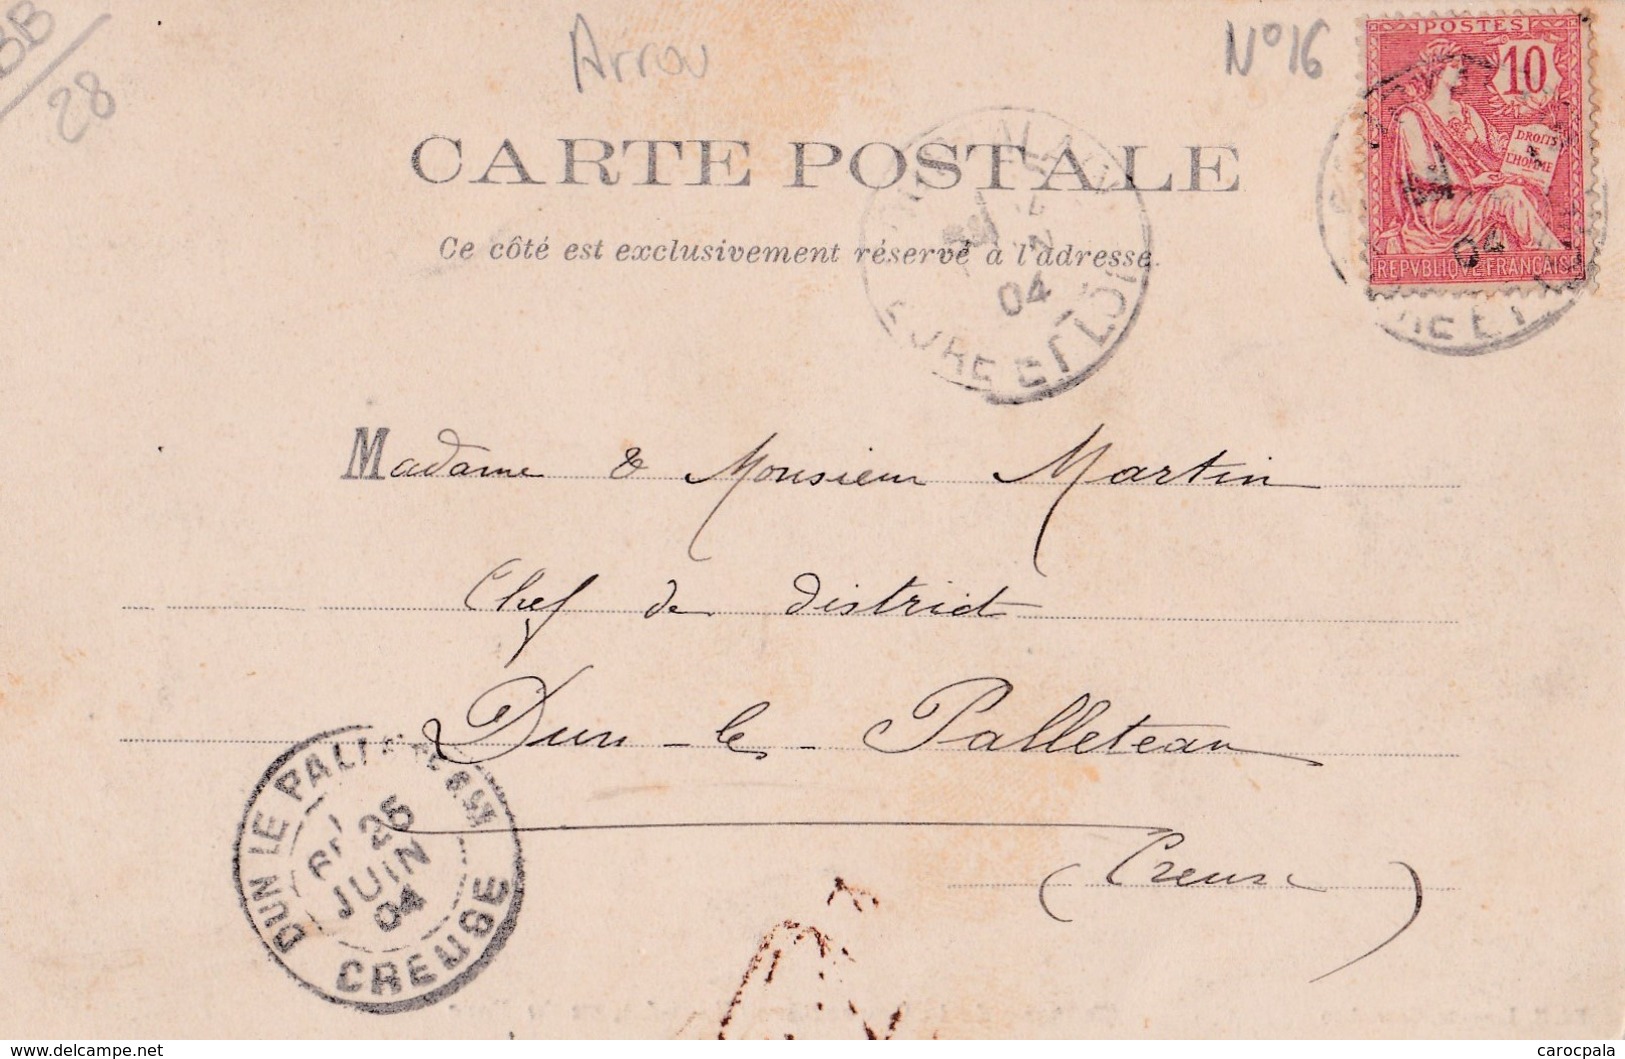 BB
28
Arrou
N° 16
POSTES
10
DROITS
DE
L'HOMME
REPVBLIQVE FRANÇAISE
04
CARTE POSTALE
Ce côté est exclusivement réservé à l'adresse.
04
EURE ET LOIR
Madame & Monsieur Martin
Chef de district
Dun-le-Palleteau
(Creuse)
DUN LE PALLETEAU
25
JUIN
04
CREUSE
carocpala